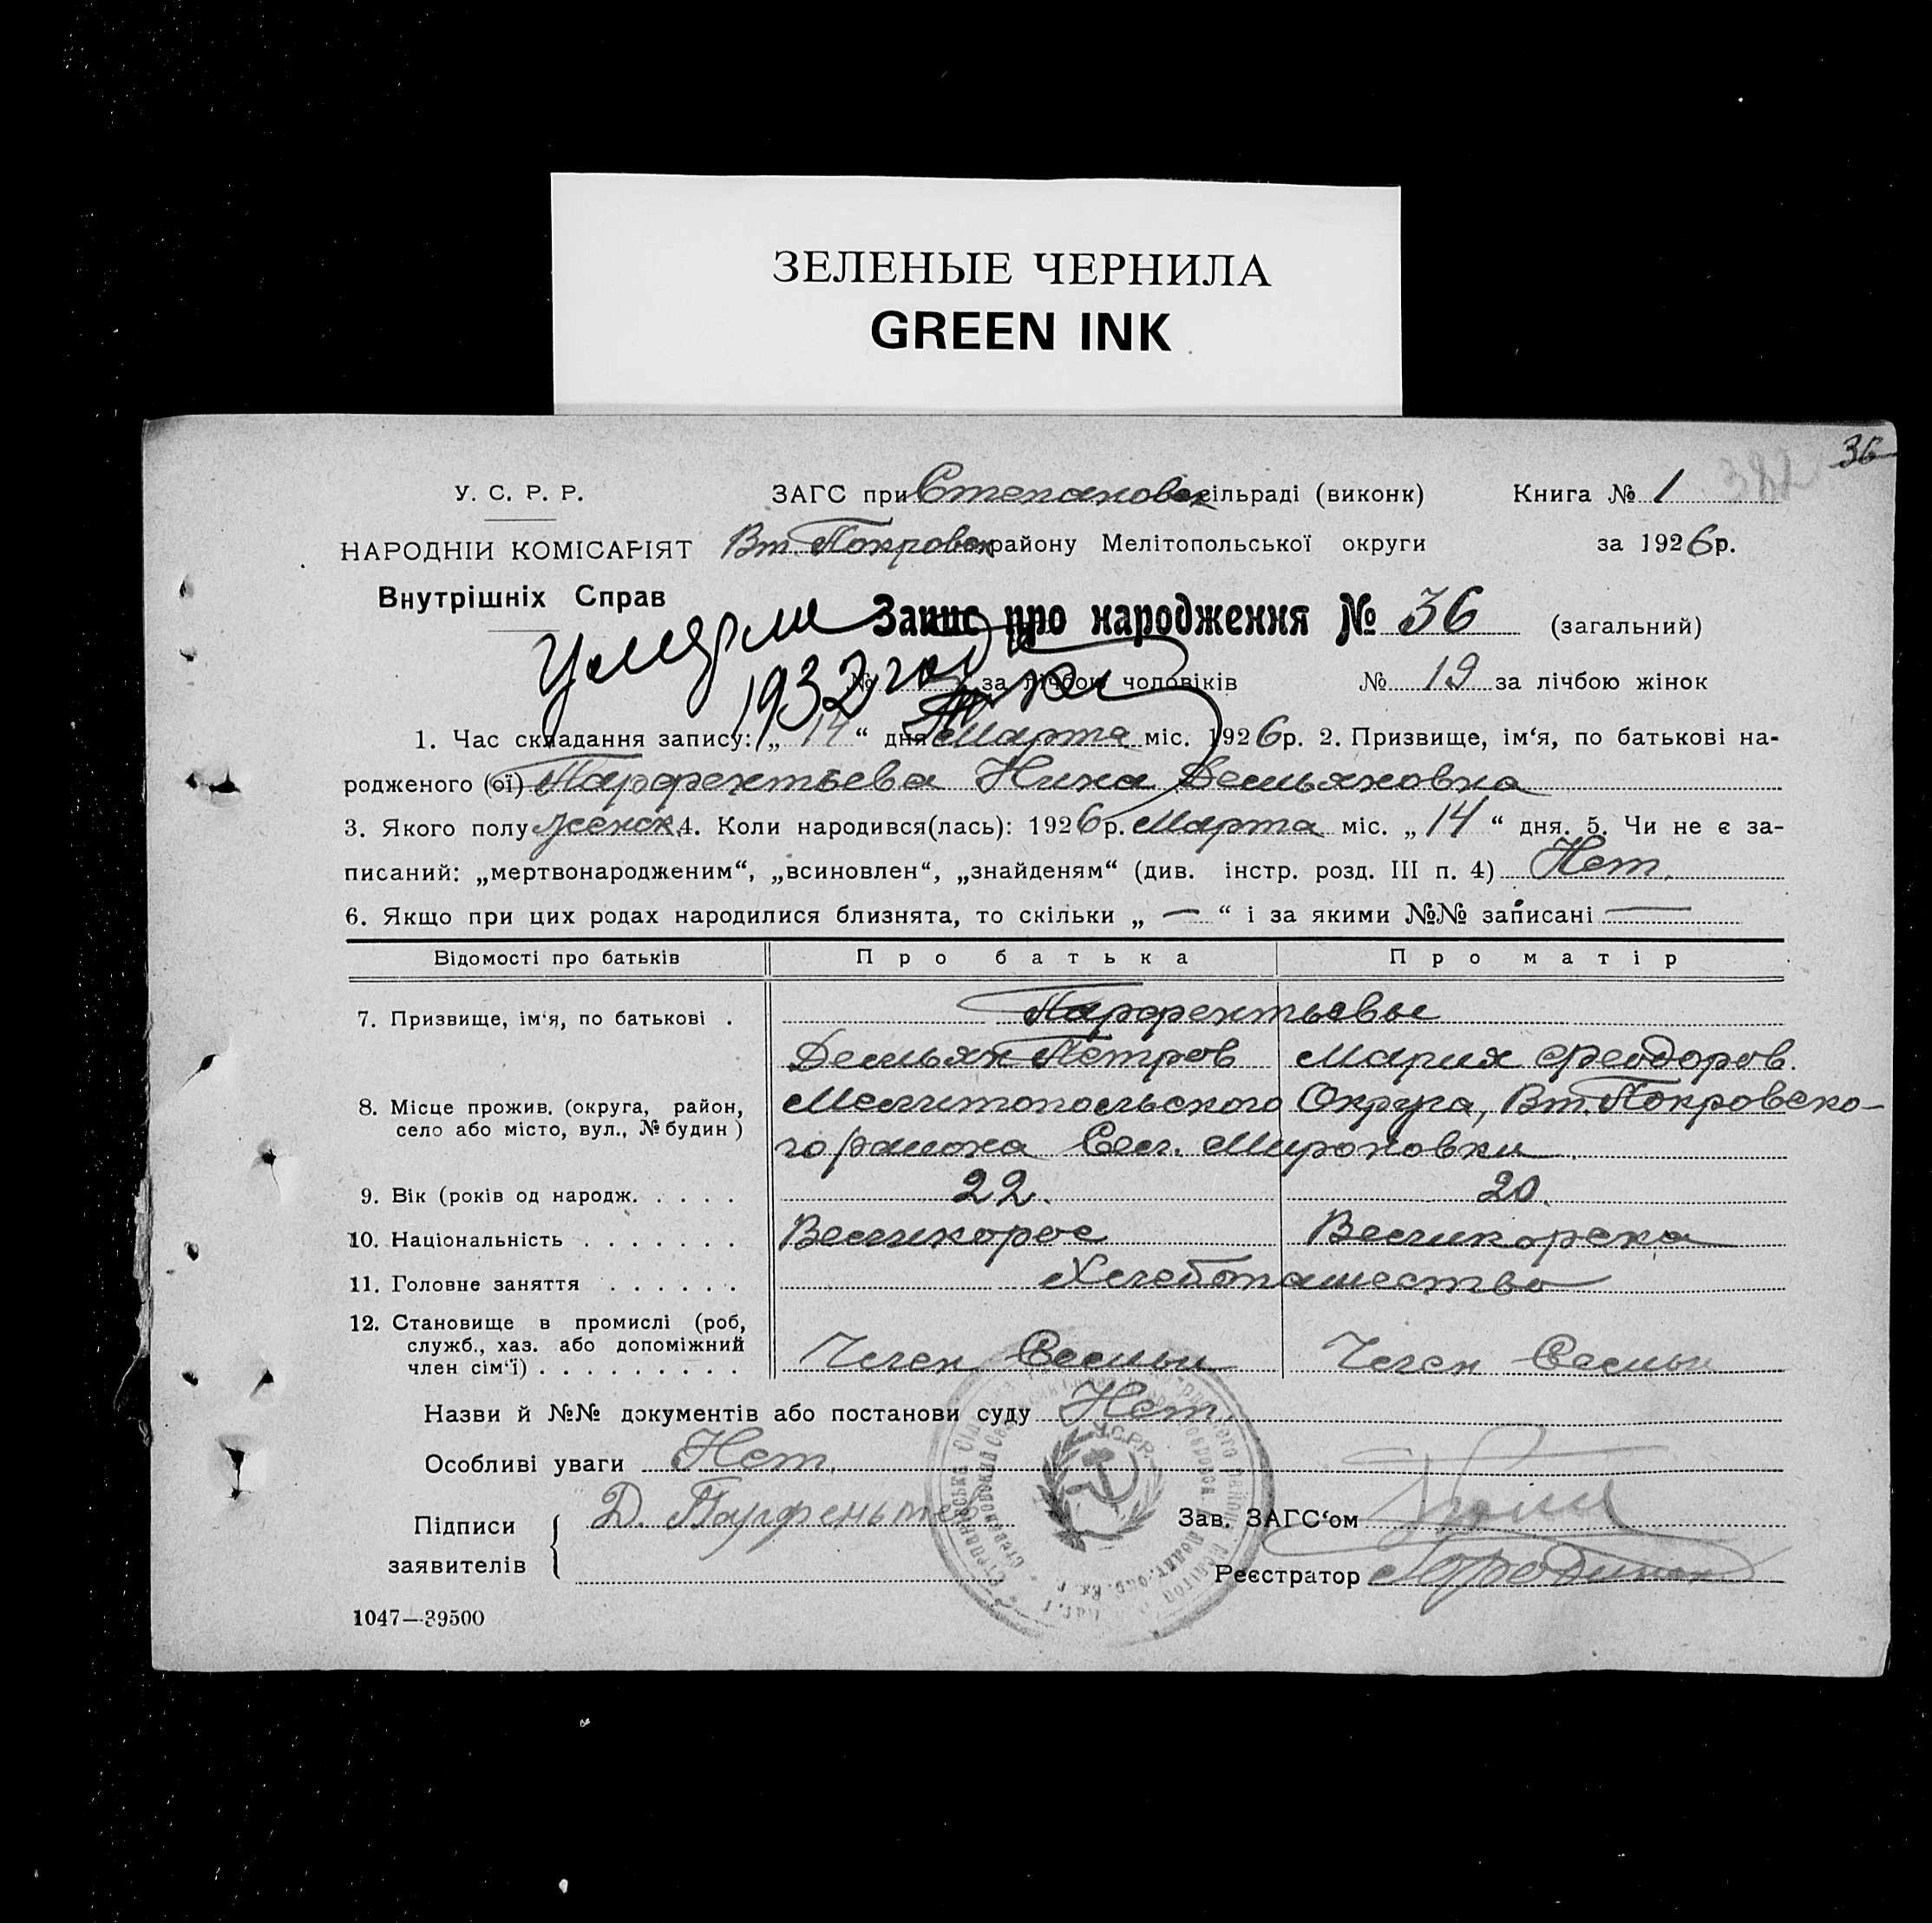 ЗЕЛЕНЫЕ ЧЕРНИЛА
GREEN INK
36
У. С. Р. Р. ЗАГС при Степановск сільраді (виконк) Книга № 1
НАРОДНІЙ КОМІСАРІЯТ Вт. Покровск району Мелітопольської округи за 1926р.
Внутрішніх Справ
Запис про народження № 36 (загальний)
Умерли
1932 года
№ за лічбою чоловіків № 19 за лічбою жінок
1. Час складання запису: „ 14 “ дня Марта міс. 1926р. 2. Призвище, ім‘я, по батькові на-
родженого (ої) Парфентьева Нина Демьяновна
3. Якого полу женск. 4. Коли народився(лась): 1926р. Марта міс. „ 14 “ дня. 5. Чи не є за-
писаний: „мертвонародженим“, „всиновлен“, „знайденям“ (див. інстр. розд. III п. 4) Нет.
6. Якщо при цих родах народилися близнята, то скільки „ — “ і за якими №№ записані —
Відомості про батьків Про батька Про матір
7. Призвище, ім‘я, по батькові . Парфентьевы
Демьян Петров Мария Феодоров.
8. Місце прожив. (округа, район, Мелитопольского Округа, Вт. Покровско-
село або місто, вул., № будин ) го района Сел. Мироновки
9. Вік (років од народж. . . . . 22. 20.
10. Національність . . . . . . . Великорос Великорска
11. Головне заняття . . . . . . Хлебопашество
12. Становище в промислі (роб,
служб., хаз. або допоміжний
член сім‘ї) . . . . . . . . . Член Семьи Член Семьи
Назви й №№ документів або постанови суду Нет.
Особливі уваги Нет.
У.С.Р.Р.
Підписи Д. Парфеньтев Зав. ЗАГС‘ом
заявителів Реєстратор
1047—39500